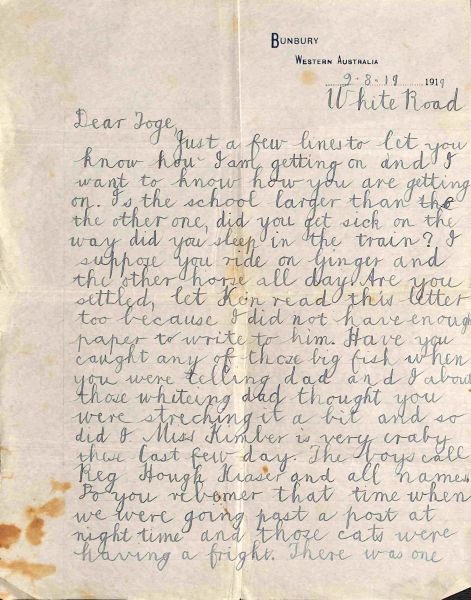 BUNBURY
WESTERN AUSTRALIA
9-8-19 1919
White Road
Dear Toge,
Just a few lines to let you
know how I am getting on and I
want to know how you are getting
on. Is the school larger than the
the other one, did you get sick on the
way did you sleep in the train? I
suppose you ride on Ginger and
the other horse all day. Are you
settled, let Ken read this letter
too because I did not have enough
paper to write to him. Have you
caught any of those big fish when
you were telling dad and I about
those whiteing dad thought you
were streching it a bit and so
did I. Miss Kimber is very craby
these last few day. The boys call
Reg Hough Kiaser and all names.
Do you rebomer that time when
we were going past a post at
night time and those cats were
having a fright. There was one